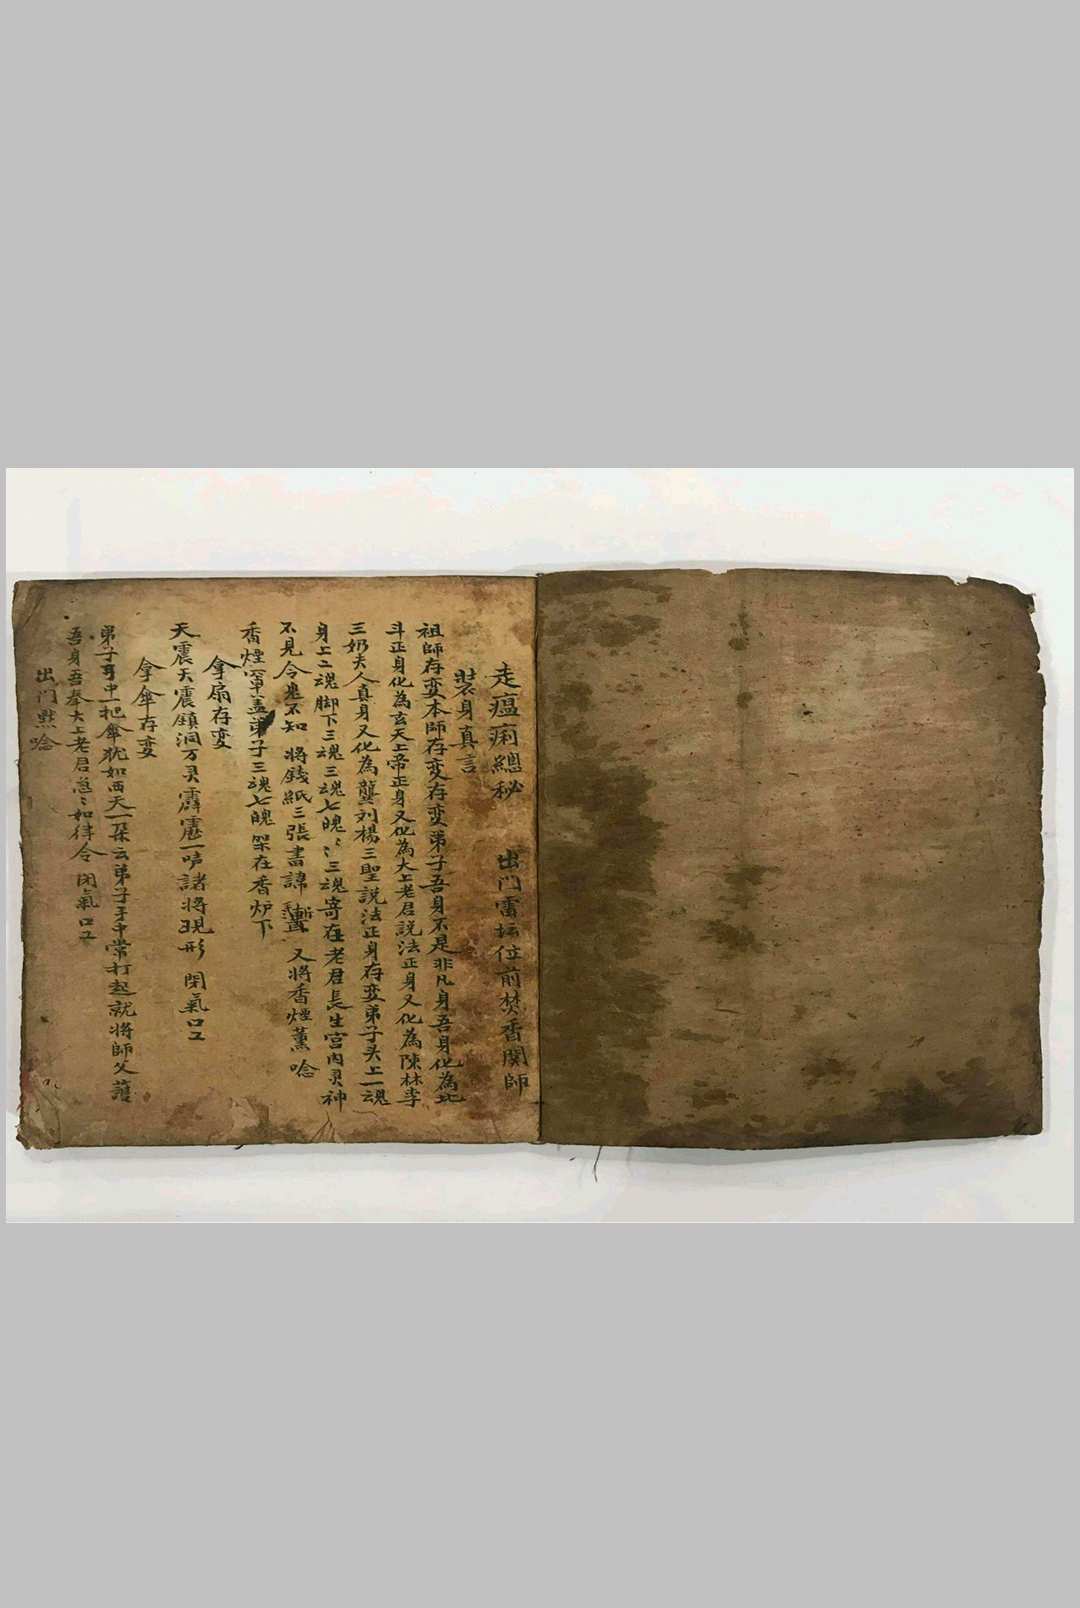 走瘟痢總秘 出门雷坛位前焚香関師
裝身真言
祖師存変本師存変存変弟子吾身不是非凡身吾身化為北
斗正身化為玄天上帝正身又化為太上老君説法正身又化為陳林李
三奶夫人真身又化為龔刘楊三聖説法正身存変弟子头上一魂
身上二魂脚下三魂三魂七魄〻三魂寄在老君長生宮内灵神
不見令鬼不知 将錢紙三張書諱 又将香煙薰 唸
香煙罩盖弟子三魂七魄架在香炉下
拿扇存変
天震天震鎮洞万灵霹靂一声諸将現形 閉氣口工
拿傘存変
弟子手中一把傘犹如西天一朶云弟子手中常打起就将師父護
吾身吾奉太上老君急〻如律令 閉氣口工
出门默唸